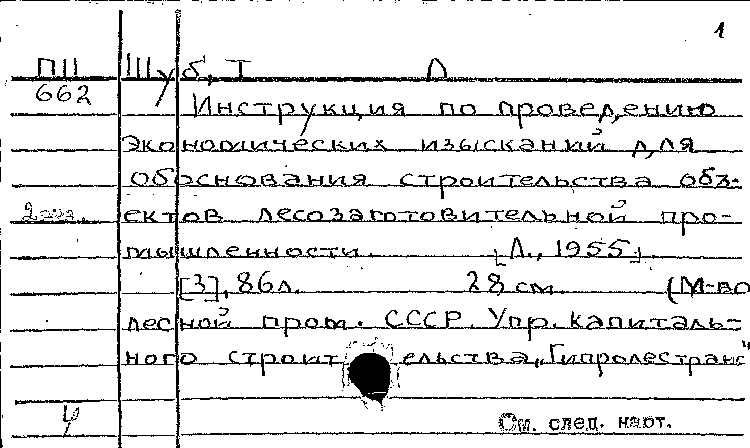 1
ПII Шуб, Т Л
662
Инструкция по проведению
экономических изысканий для
обоснования строительства объ-
2 экз. ектов лесозаготовительной про-
мышленности. [Л., 1955].
[3], 86л. 28 см. (М-во
лесной пром. СССР. Упр. капиталь-
ного строительства, "Гипролестранс"
У
См. след. карт.